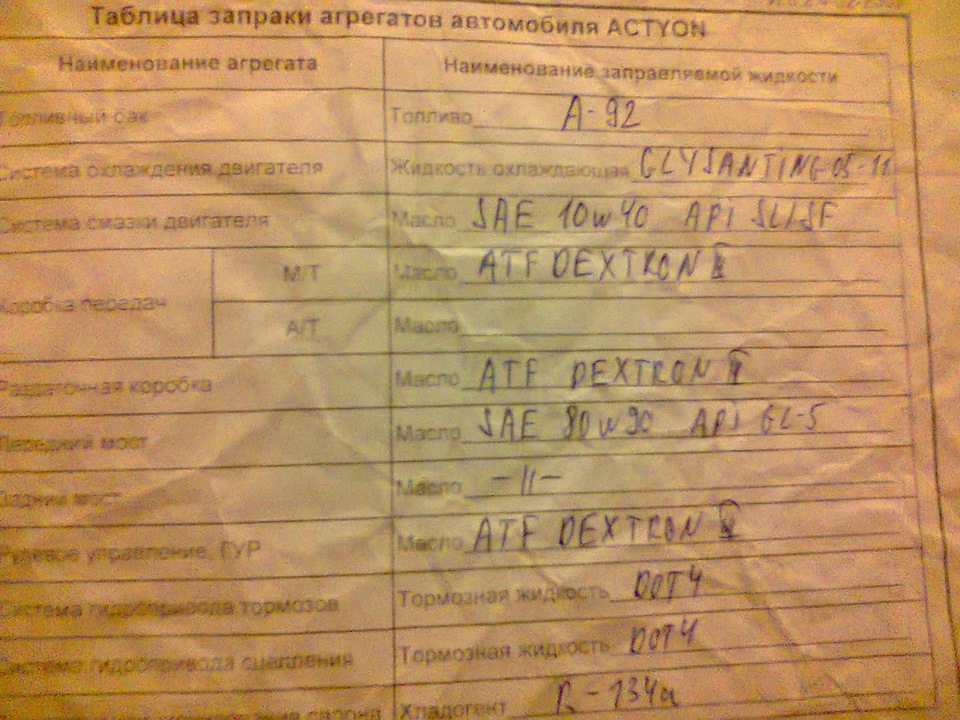 Таблица запраки агрегатов автомобиля ACTYON
Наименование агрегата Наименование заправляемой жидкости
Топливный бак Топливо A-92
Система охлаждения двигателя Жидкость охлаждающая
Система смазки двигателя Масло SAE 10w40 APi SL/SF
Коробка передач
М/Т Масло ATF DEXTRON
А/Т Масло
Раздаточная коробка Масло ATF DEXTRON
Передний мост Масло SAE 80w90 APi GL-5
Задний мост Масло -11-
Рулевое управление, ГУР Масло ATF DEXTRON
Система гидропривода тормозов Тормозная жидкость DOT4
Система гидропривода сцепления Тормозная жидкость DOT4
салона Хладогент R-134a